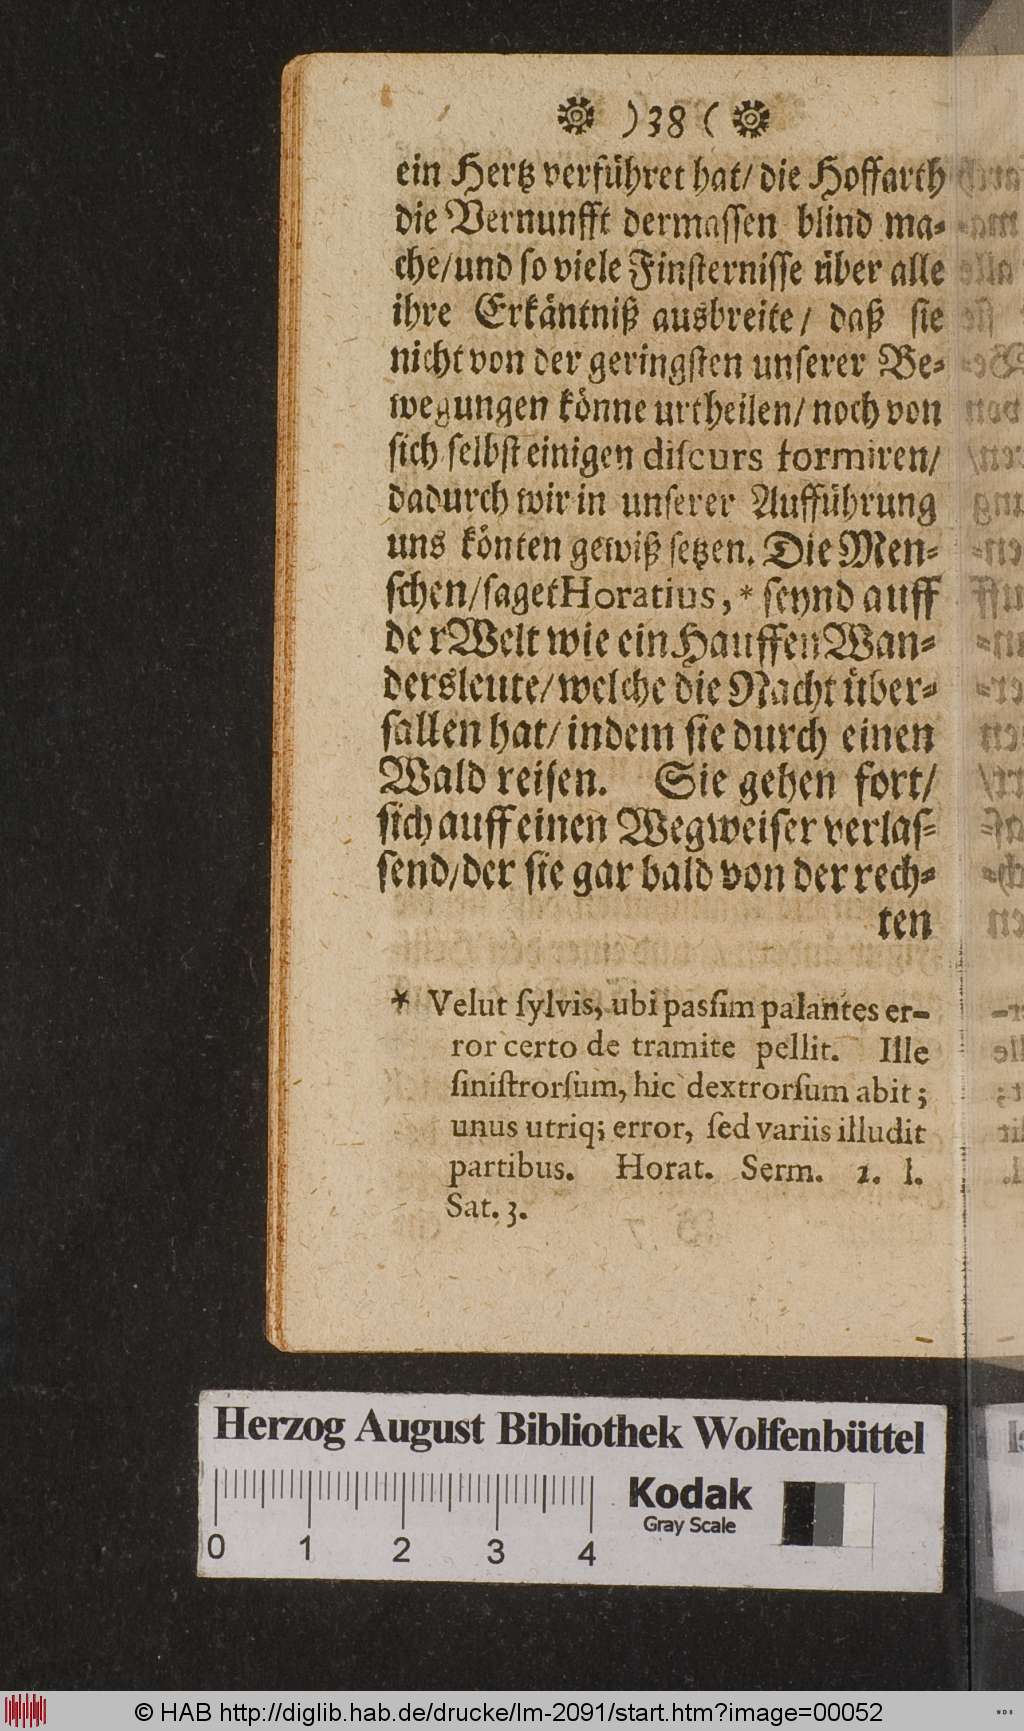 )38(
ein Hertz verführet hat/ die Hoffarth
die Vernunfft dermaſſen blind ma-
che/und ſo viele Finſterniſſe über alle
ihre Erkäntniß ausbreite/ daß ſie
nicht von der geringſten unſerer Be-
wegungen könne urtheilen/ noch von
ſich ſelbſt einigen diſcurs formiren/
dadurch wir in unſerer Aufführung
uns könten gewiß ſetzen. Die Men-
ſchen/ſaget Horatius,* ſeynd auff
de r Welt wie ein Hauffen Wan-
dersleute/welche die Nacht über-
fallen hat/ indem ſie durch einen
Wald reiſen. Sie gehen fort/
ſich auff einen Wegweiſer verlaſ-
ſend/der ſie gar bald von der rech-
ten
* Velut ſylvis, ubi paſſim palantes er-
ror certo de tramite pellit. Ille
ſiniſtrorſum, hic dextrorſum abit;
unus utriq; error, ſed variis illudit
partibus. Horat. Serm. 2. l.
Sat. 3.
Herzog August Bibliothek Wolfenbüttel
0 1 2 3 4
Kodak
Gray Scale
© HAB http://diglib.hab.de/drucke/lm-2091/start.htm?image=00052